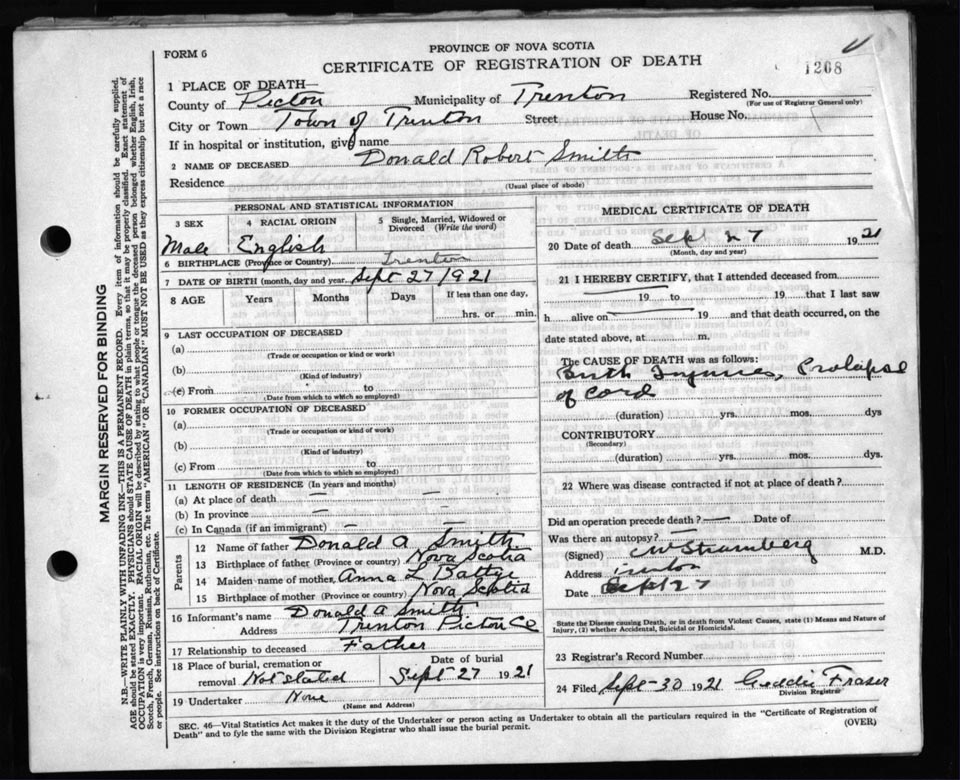 FORM 6
PROVINCE OF NOVA SCOTIA
CERTIFICATE OF REGISTRATION OF DEATH
1208
1 PLACE OF DEATH
County of Picton Municipality of Trenton Registered No.
(For use of Registrar General only)
City or Town Town of Trenton Street House No.
If in hospital or institution, give name
2 NAME OF DECEASED Donald Robert Smith
Residence
(Usual place of abode)
PERSONAL AND STATISTICAL INFORMATION
3 SEX 4 RACIAL ORIGIN 5 Single, Married, Widowed or Divorced (Write the word)
Male English
6 BIRTHPLACE (Province or Country) Trenton
7 DATE OF BIRTH (month, day and year) Sept 27/921
8 AGE Years Months Days If less than one day, hrs. or min.
9 LAST OCCUPATION OF DECEASED
(a)
(Trade or occupation or kind or work)
(b)
(Kind of industry)
(c) From to
(Date from which to which so employed)
10 FORMER OCCUPATION OF DECEASED
(a)
(Trade or occupation or kind of work)
(b)
(Kind of industry)
(c) From to
(Date from which to which so employed)
11 LENGTH OF RESIDENCE (In years and months)
(a) At place of death — —
(b) In province — —
(c) In Canada (if an immigrant) — —
Parents
12 Name of father Donald A Smith
13 Birthplace of father (Province or country) Nova Scotia
14 Maiden name of mother Anna L
15 Birthplace of mother (Province or country) Nova Scotia
16 Informant's name Donald A Smith
Address Trenton Picton Co
17 Relationship to deceased Father
18 Place of burial, cremation or removal Not stated Date of burial Sept 27 1921
19 Undertaker None
(Name and Address)
MEDICAL CERTIFICATE OF DEATH
20 Date of death Sept 27 1921
(Month, day and year)
21 I HEREBY CERTIFY, that I attended deceased from
19 to 19 that I last saw
h alive on 19 and that death occurred, on the
date stated above, at m.
The CAUSE OF DEATH was as follows:
Birth Injuries, Prolapse
of Cord
(duration) yrs. mos. dys
CONTRIBUTORY
(Secondary)
(duration) yrs. mos. dys.
22 Where was disease contracted if not at place of death?
Did an operation precede death? — Date of
Was there an autopsy? —
(Signed) M.D.
Address Trenton
Date Sept 27
State the Disease causing Death, or in death from Violent Causes, state (1) Means and Nature of
Injury, (2) whether Accidental, Suicidal or Homicidal.
23 Registrar's Record Number
24 Filed Sept-30 1921 Fraser
Division Registrar
SEC. 46—Vital Statistics Act makes it the duty of the Undertaker or person acting as Undertaker to obtain all the particulars required in the "Certificate of Registration of
Death" and to fyle the same with the Division Registrar who shall issue the burial permit. (OVER)
MARGIN RESERVED FOR BINDING
N.B.—WRITE PLAINLY WITH UNFADING INK—THIS IS A PERMANENT RECORD. Every item of information should be carefully supplied.
AGE should be stated EXACTLY. PHYSICIANS should STATE CAUSE OF DEATH in plain terms, so that it may be properly classified. Exact statement of
OCCUPATION is very important. RACIAL ORIGIN will be described by stating to what people or tongue the deceased person belonged whether English, Irish,
Scotch, French, German, Russian, Ruthenian, etc. The terms "AMERICAN" OR "CANADIAN" MUST NOT BE USED as they express citizenship but not a race
or people. See instructions on back of Certificate.